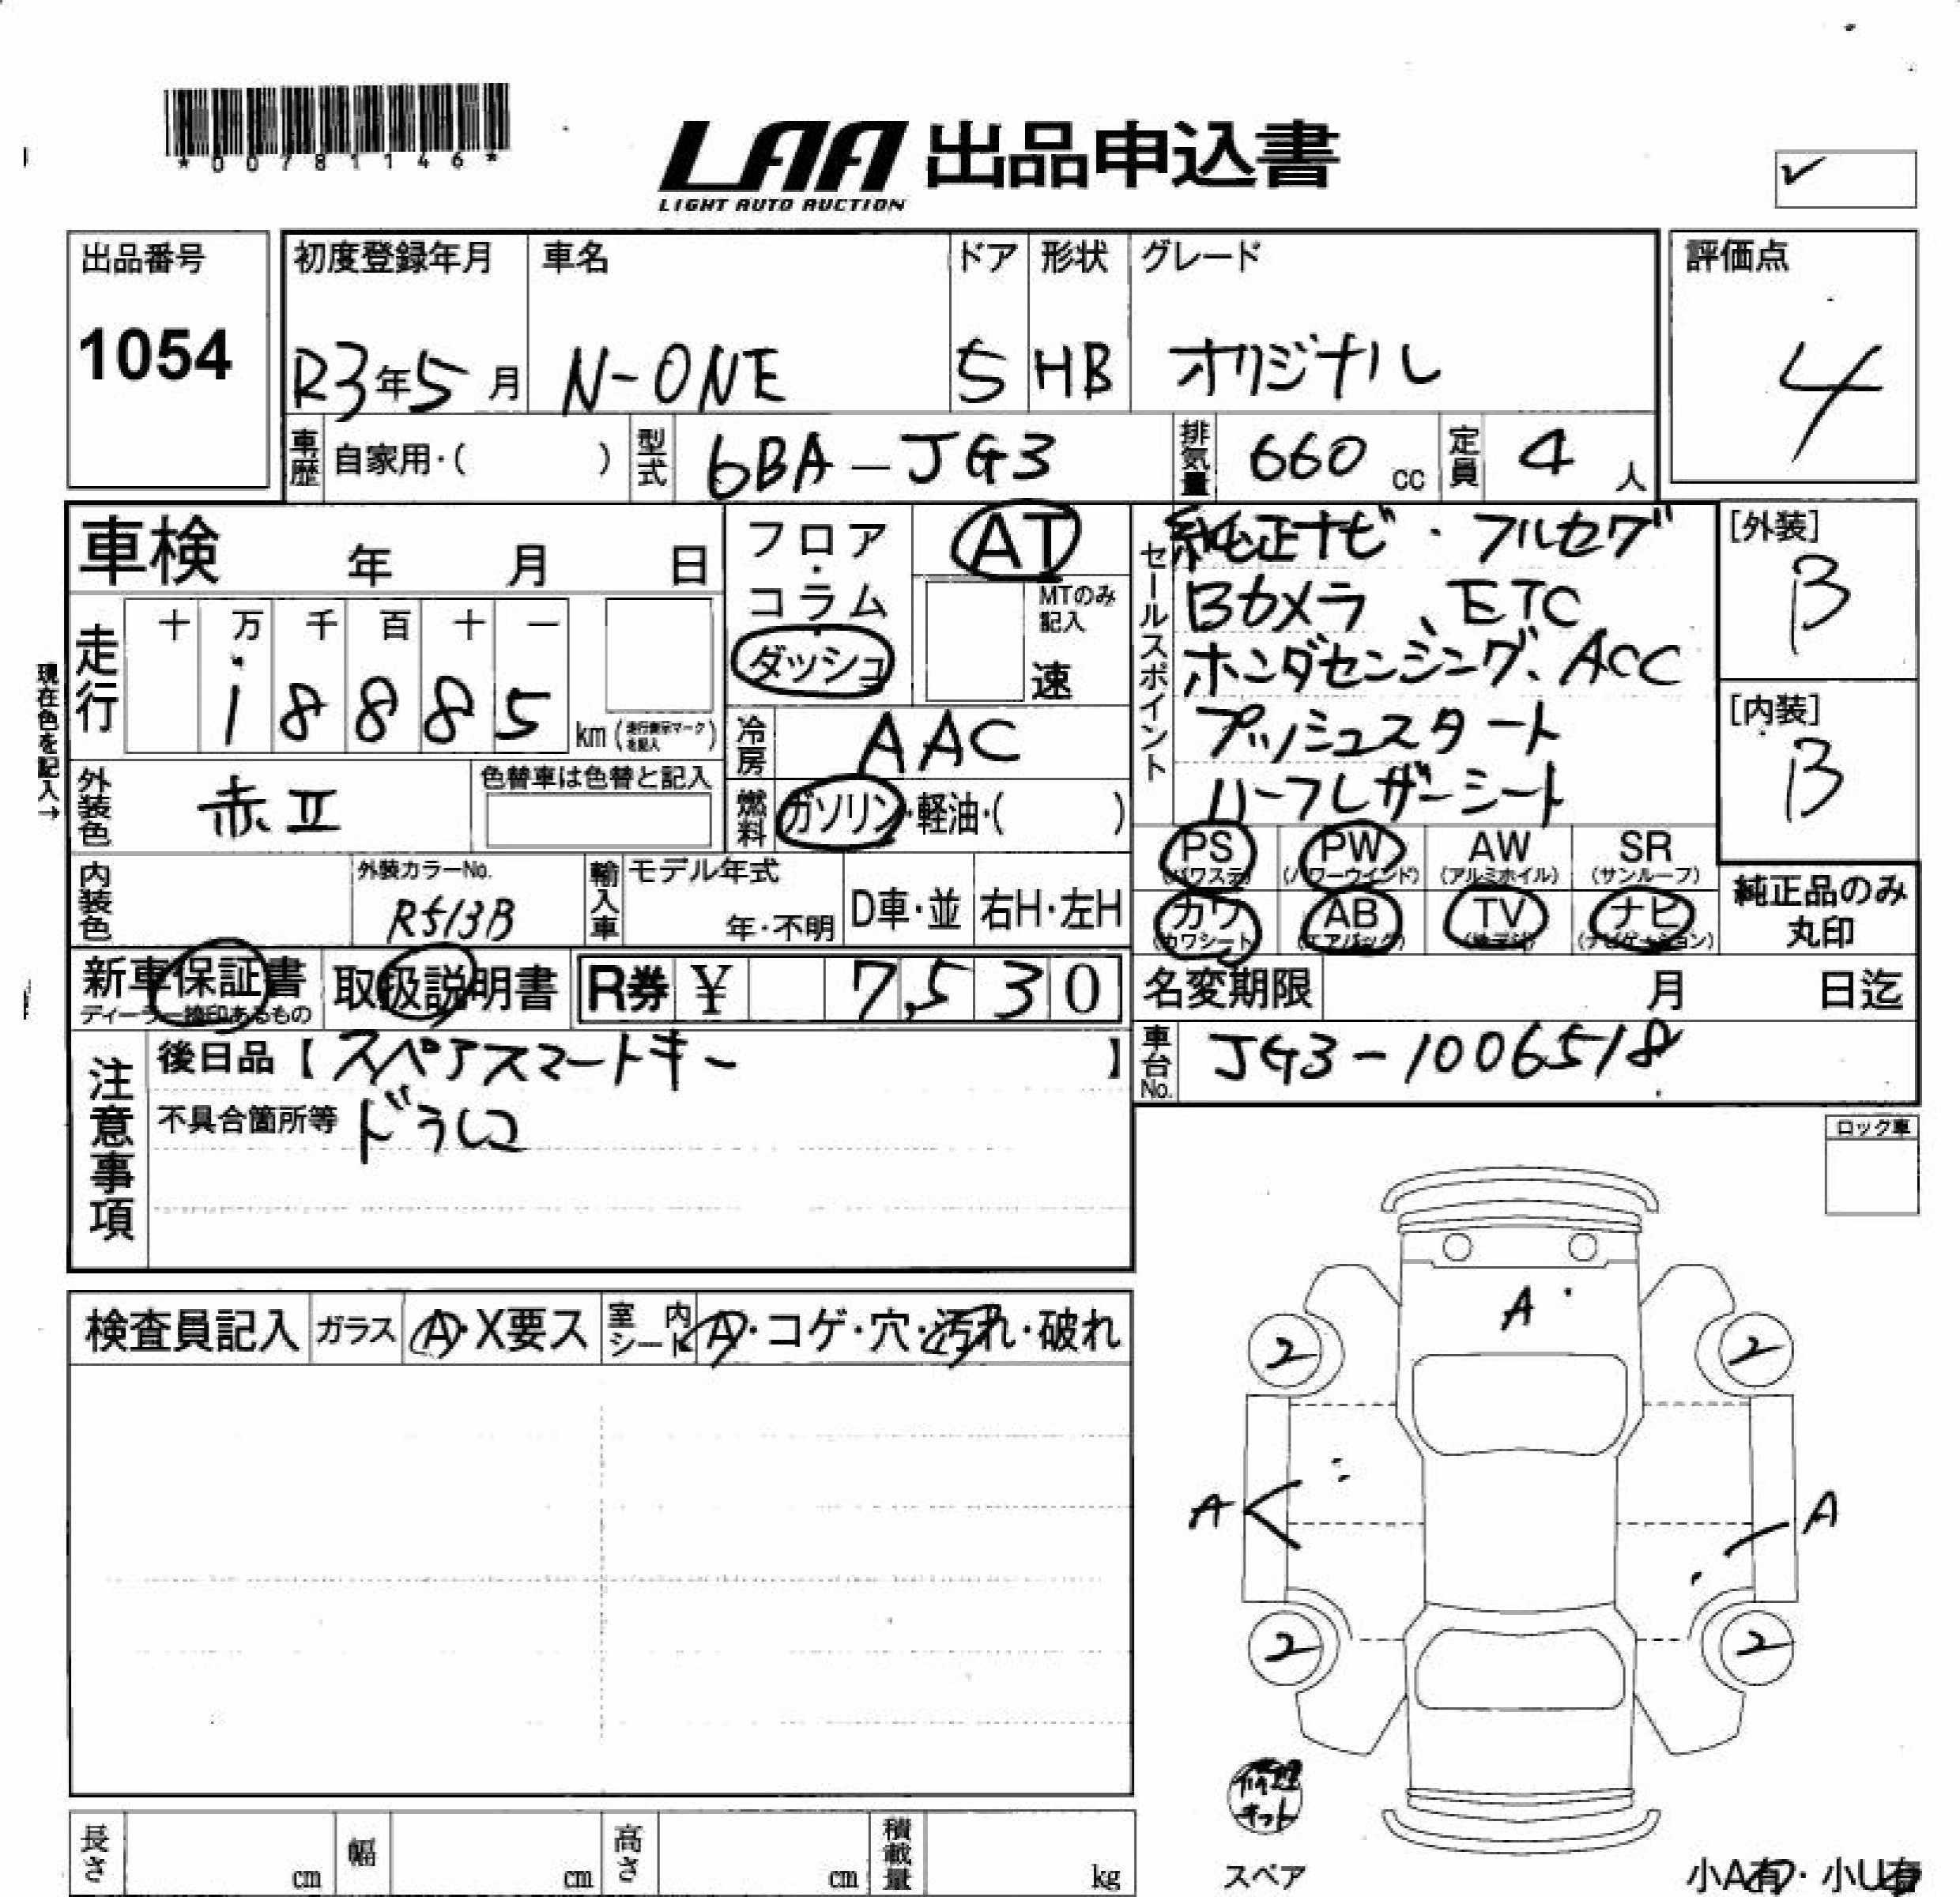 *00781146*
LAA 出品申込書
LIGHT AUTO AUCTION
出品番号
1054
初度登録年月 車名 ドア 形状 グレード
R3年5月 N-ONE 5 HB オリジナル
評価点
4
車歴 自家用・( ) 型式 6BA-JG3 排気量 660 cc 定員 4 人
車検 年 月 日
フロア・コラム
ダッシュ
AT
MTのみ記入
速
セールスポイント
純正ナビ・フルセグ
Bカメラ、ETC
ホンダセンシング、ACC
プッシュスタート
ハーフレザーシート
[外装]
B
[内装]
B
現在色を記入→
走行 十 万 千 百 十 一
1 8 8 8 5 km(走行表示マークを記入)
冷房 AAC
外装色 赤II 色替車は色替と記入
燃料 ガソリン・軽油・( )
PS (パワステ) PW (パワーウインド) AW (アルミホイル) SR (サンルーフ)
カワ (カワシート) AB (エアバック) TV ナビ (ナビゲーション)
純正品のみ
丸印
内装色 外装カラーNo. R513B 輸入車 モデル年式 年・不明 D車・並 右H・左H
新車保証書
ディーラー捺印あるもの
取扱説明書 R券 ¥ 7,530
名変期限 月 日迄
車台No. JG3-1006518
注意事項
後日品【スペアスマートキー】
不具合箇所等 ドラレコ
ロック車
検査員記入 ガラス A・X要ス 室内シート A・コゲ・穴・汚れ・破れ
A
2 2
A A
2 2
修理キット
スペア
小A有・小U有
長さ cm 幅 cm 高さ cm 積載量 kg